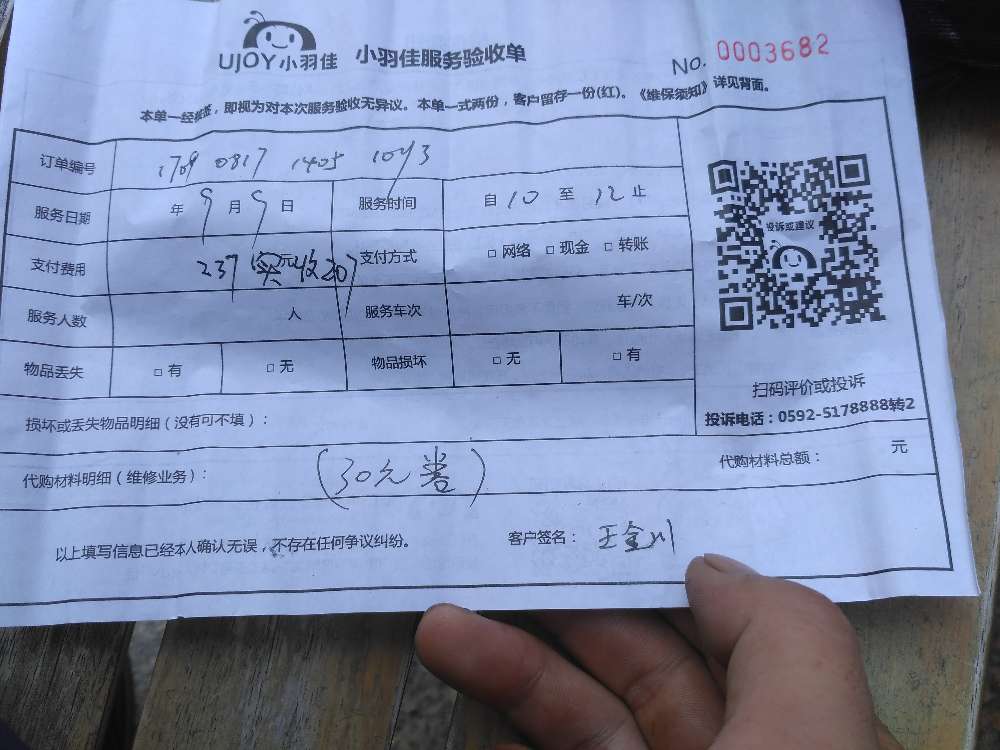 UJOY小羽佳 小羽佳服务验收单 No. 0003682
本单一经核签，即视为对本次服务验收无异议。本单一式两份，客户留存一份(红)。《维保须知》详见背面。
订单编号 1709 0817 1405 1043
服务日期 年 9 月 9 日 服务时间 自 10 至 12 止
投诉或建议
支付费用 237 元 实收207 支付方式 □ 网络 □ 现金 □ 转账
服务人数 人 服务车次 车/次
物品丢失 □ 有 □ 无 物品损坏 □ 无 □ 有
扫码评价或投诉
投诉电话：0592-5178888转2
损坏或丢失物品明细（没有可不填）：
代购材料明细（维修业务）： (30元券) 代购材料总额： 元
以上填写信息已经本人确认无误，不存在任何争议纠纷。 客户签名： 王金川